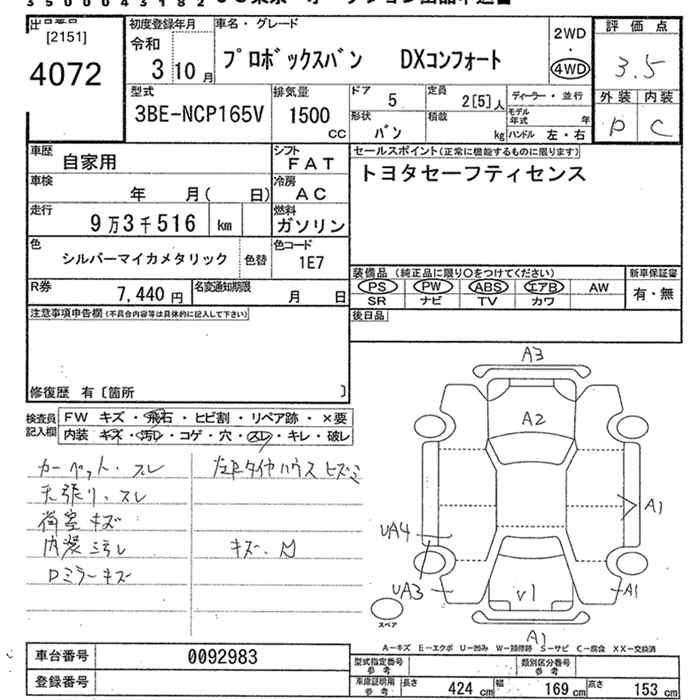 出品番号
[2151]
4072
初度登録年月
令和
3年10月
車名・グレード
プロボックスバン DXコンフォート
2WD
・
4WD
評価点
3.5
外装 内装
D C
型式
3BE-NCP165V
排気量
1500
cc
ドア
5
定員
2[5]人
形状
バン
積載
kg
ディーラー・並行
モデル年式 年
ハンドル 左・右
車歴
自家用
シフト
FAT
車検
年 月( 日)
冷房
AC
走行
9万3千516 km
燃料
ガソリン
色
シルバーマイカメタリック
色替
色コード
1E7
R券
7,440円
名変通知期限
月 日
セールスポイント(正常に機能するものに限ります)
トヨタセーフティセンス
装備品(純正品に限り○をつけてください)
PS PW ABS エアB AW
SR ナビ TV カワ
新車保証書
有・無
後日品
注意事項申告欄(不具合内容等は具体的に記入して下さい)
修復歴 有〔箇所 〕
検査員
記入欄
FW キズ・飛石・ヒビ割・リペア跡・×要
内装 キズ・汚レ・コゲ・穴・スレ・キレ・破レ
カーペット・スレ
天張り・スレ
荷室キズ
内装汚れ
Dミラーキズ
左Rタイヤハウスヒズミ
キズ、凹
A3
A2
A1
UA4
UA3
V1
A1
A1
スペア
A−キズ E−エクボ U−凹み W−補修跡 S−サビ C−腐食 XX−交換済
車台番号
0092983
登録番号
型式指定番号
参考
類別区分番号
参考
車庫証明用
参考
長さ 424 cm 幅 169 cm 高さ 153 cm